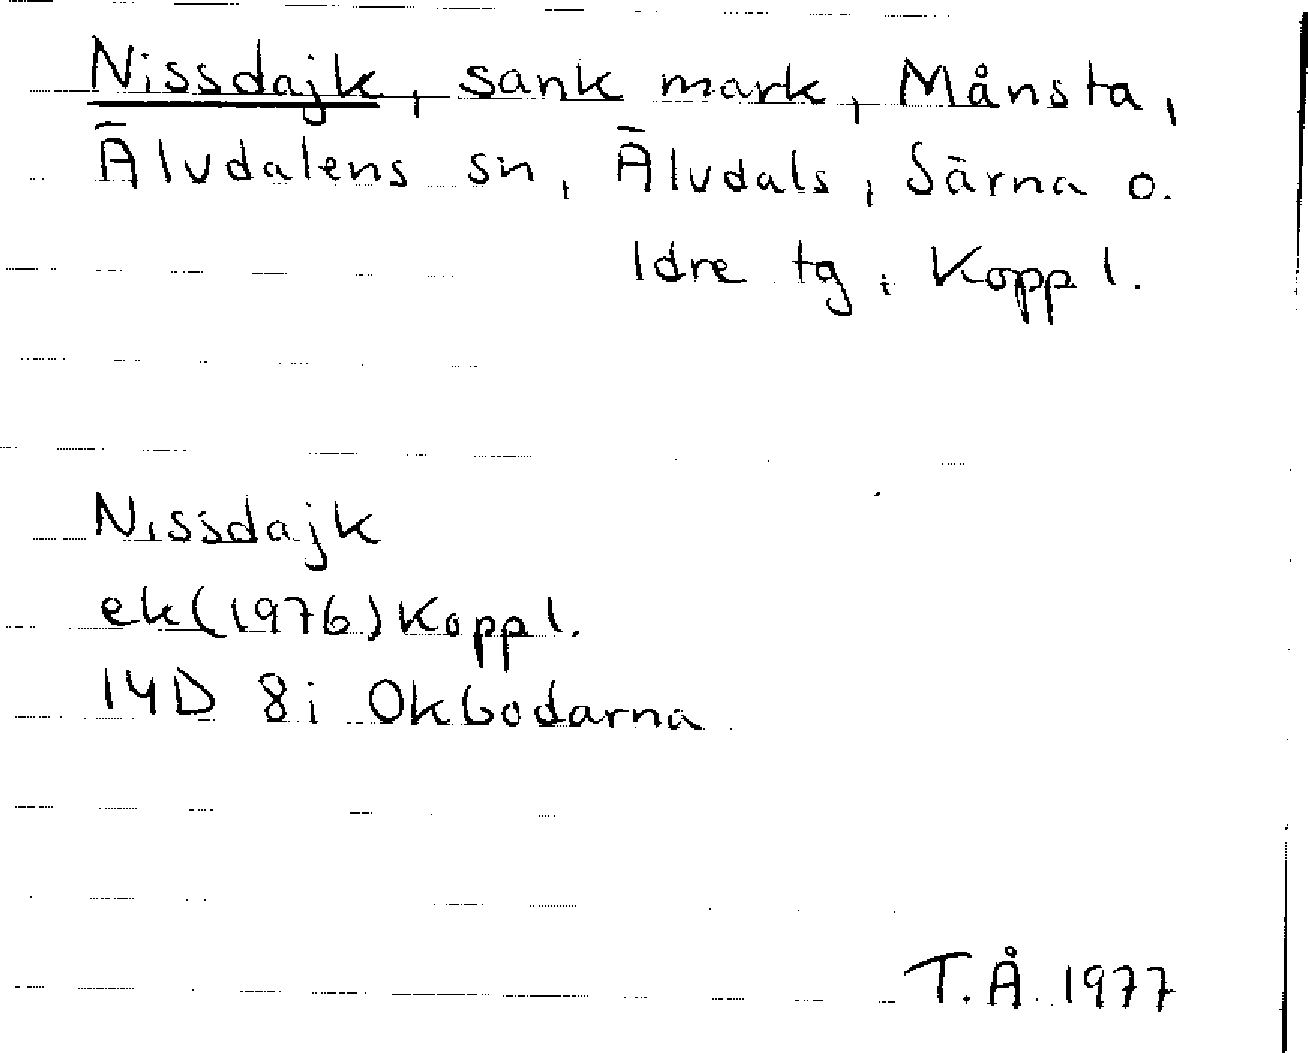 Nissdajk, sank mark, Månsta,
Älvdalens sn, Älvdals, Särna o.
Idre tg, Kopp l.
Nissdajk
ek (1976) Kopp l.
14D 8i Okbodarna
T.Å. 1977